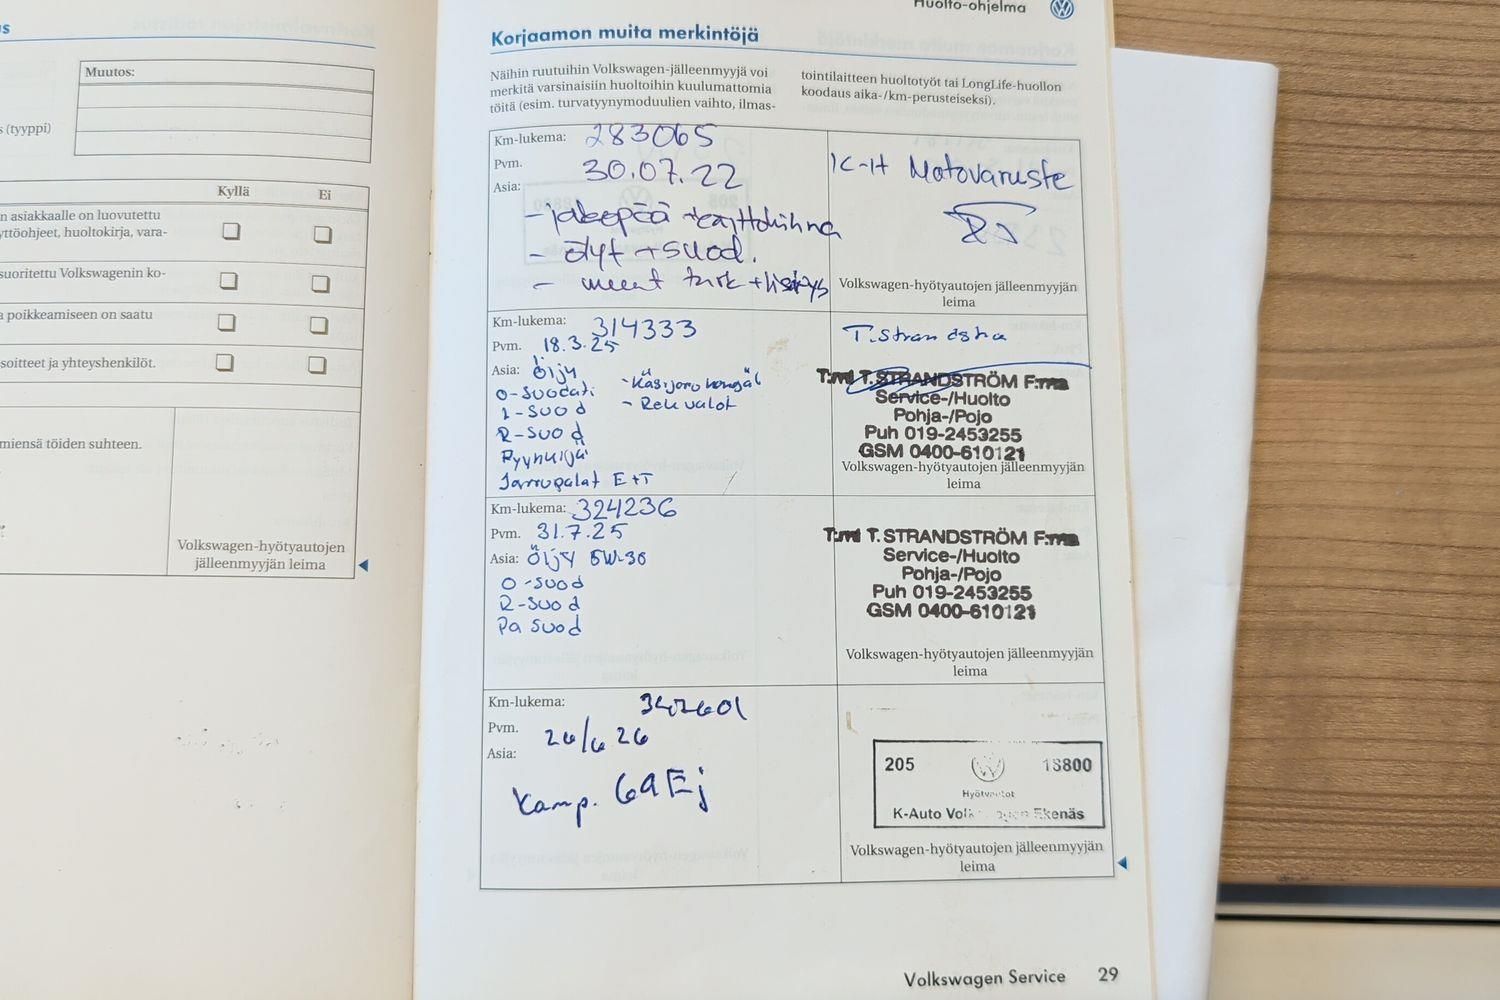 s
Muutos:
s (tyyppi)
Kyllä Ei
n asiakkaalle on luovutettu
yttöohjeet, huoltokirja, vara-
suoritettu Volkswagenin ko-
a poikkeamiseen on saatu
soitteet ja yhteyshenkilöt.
miensä töiden suhteen.
Volkswagen-hyötyautojen
jälleenmyyjän leima
Huolto-ohjelma
Korjaamon muita merkintöjä
Näihin ruutuihin Volkswagen-jälleenmyyjä voi
merkitä varsinaisiin huoltoihin kuulumattomia
töitä (esim. turvatyynymoduulien vaihto, ilmas-
tointilaitteen huoltotyöt tai LongLife-huollon
koodaus aika-/km-perusteiseksi).
Km-lukema: 283065
Pvm. 30.07.22
Asia:
- jakopää + käyttöhihna
- öljyt + suod.
- muut tark + lisäys
K-H Motovaruste
Volkswagen-hyötyautojen jälleenmyyjän
leima
Km-lukema: 314333
Pvm. 18.3.25
Asia: Öljy
Ö-suodati
I-suod
R-suod
Pyyhkijä
Jarrupalat E+T
- Rek valot
T:mi T. STRANDSTRÖM F:ma
Service-/Huolto
Pohja-/Pojo
Puh 019-2453255
GSM 0400-610121
Volkswagen-hyötyautojen jälleenmyyjän
leima
Km-lukema: 324236
Pvm. 31.7.25
Asia: Öljy 5W-30
Ö-suod
R-suod
Pa suod
T:mi T. STRANDSTRÖM F:ma
Service-/Huolto
Pohja-/Pojo
Puh 019-2453255
GSM 0400-610121
Volkswagen-hyötyautojen jälleenmyyjän
leima
Km-lukema: 342601
Pvm. 26/6 26
Asia:
Kamp. 69Ej
205 18800
Hyötyautot
K-Auto Volkswagen Ekenäs
Volkswagen-hyötyautojen jälleenmyyjän
leima
Volkswagen Service 29